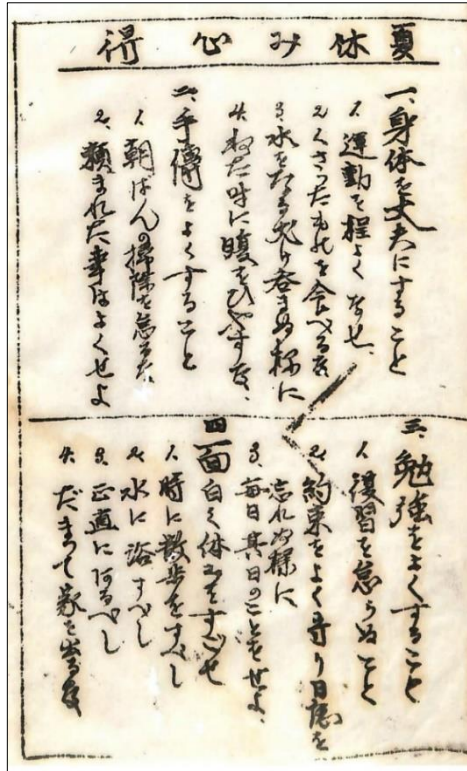 夏休み心得
一、身体を丈夫にすること
1. 運動を程よくなせ、
2. くさったものを食べるな
3. 水をなるべく呑まぬ様に
4. ねた時に腹をひやすな、
二、手傳をよくすること
1. 朝ばんの掃除を怠るな、
2. 頼まれた事はよくせよ
三、勉強をよくすること
1. 復習を怠らぬこと
2. 約束をよく守り日誌を
忘れぬ様に
3. 毎日其日のことをせよ、
四 面白く休みをすごせ
1. 時に散歩をすべし
2. 水に浴すべし
3. 正直にあるべし
4. だまって家を出るな